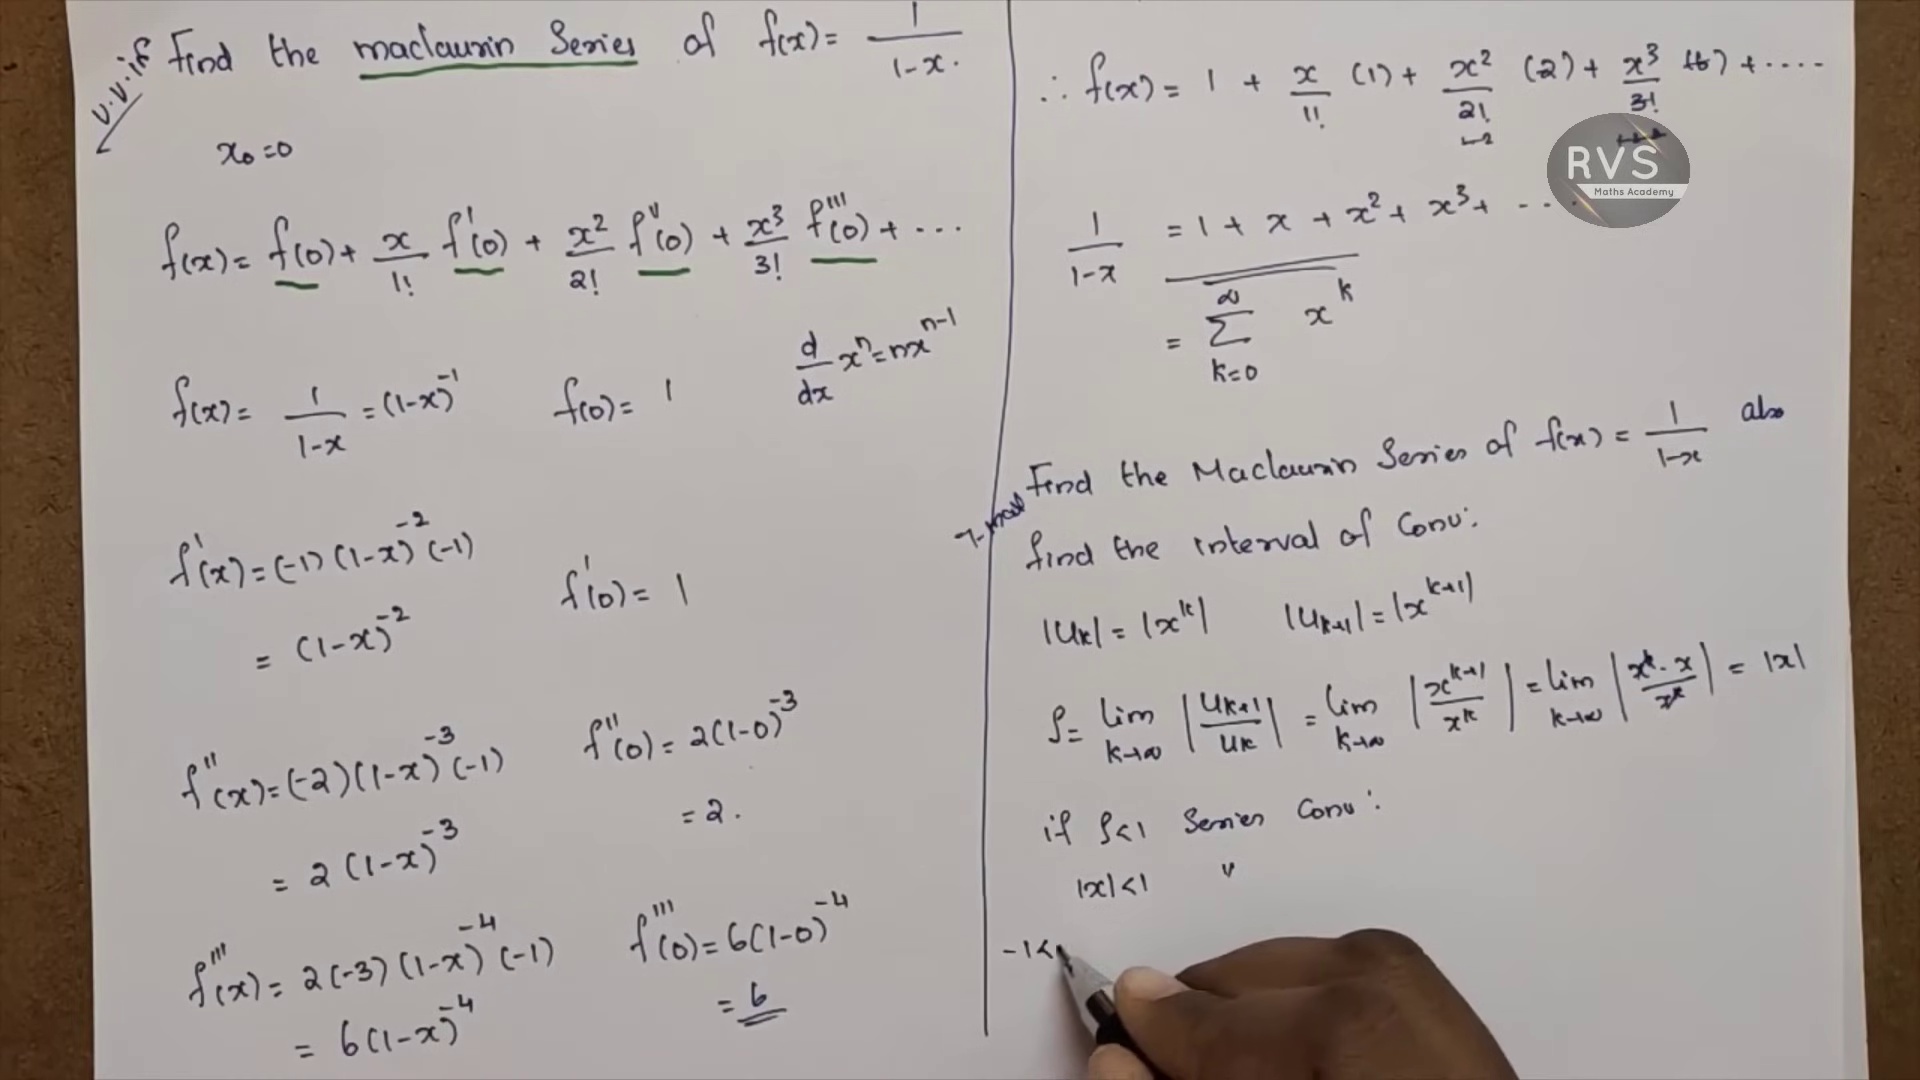 v.v.if
Find the maclaurin Series of f(x) = 1/1-x.
x₀=0
f(x) = f(0) + x/1! f'(0) + x²/2! f''(0) + x³/3! f'''(0) + ...
d/dx xⁿ = nxⁿ⁻¹
f(x) = 1/1-x = (1-x)⁻¹ f(0) = 1
f'(x) = (-1)(1-x)⁻²(-1)
= (1-x)⁻² f'(0) = 1
f''(x) = (-2)(1-x)⁻³(-1) f''(0) = 2(1-0)⁻³
= 2(1-x)⁻³ = 2.
f'''(x) = 2(-3)(1-x)⁻⁴(-1) f'''(0) = 6(1-0)⁻⁴
= 6(1-x)⁻⁴ = 6
∴ f(x) = 1 + x/1! (1) + x²/2! (2) + x³/3! (6) + ....
RVS
Maths Academy
1/1-x = 1 + x + x² + x³ + ...
= ∞ Σ k=0 xᵏ
Find the Maclaurin Series of f(x) = 1/1-x also
find the interval of Conv:
|Uₖ| = |xᵏ| |Uₖ₊₁| = |xᵏ⁺¹|
ρ = lim k→∞ |Uₖ₊₁/Uₖ| = lim k→∞ |xᵏ⁺¹/xᵏ| = lim k→∞ |xᵏ·x/xᵏ| = |x|
if ρ<1 Series Conv:
|x|<1 "
-1<